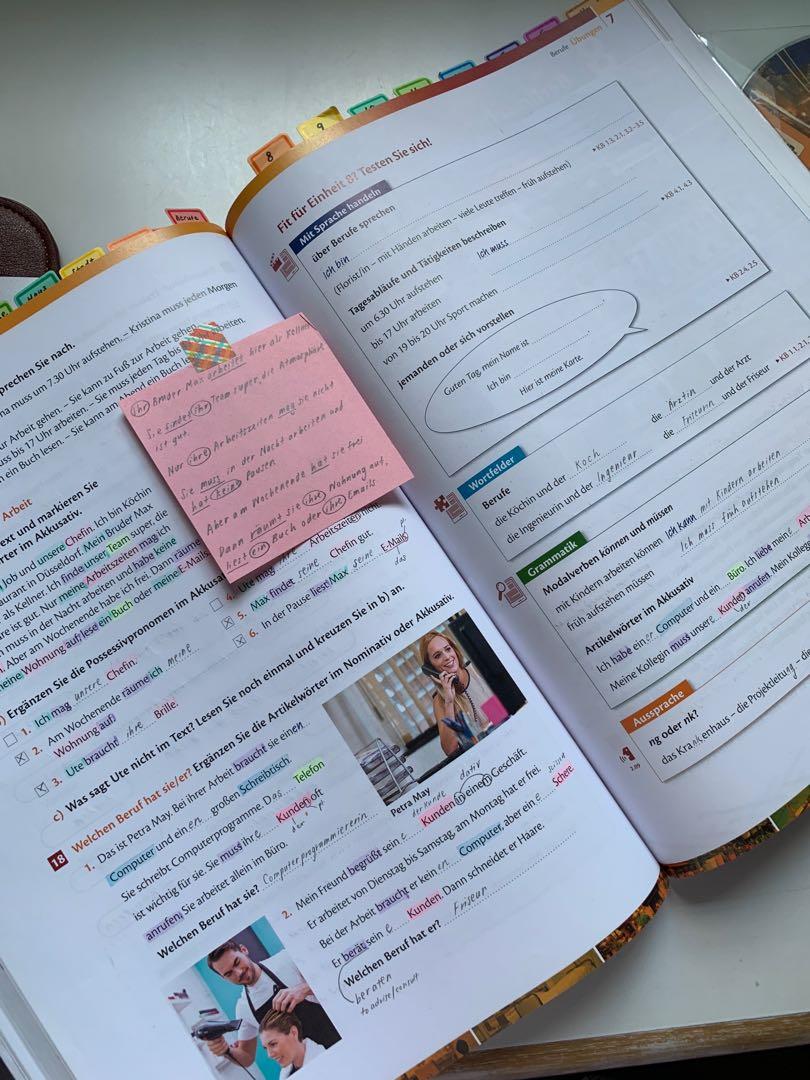 8
9
10
11
Berufe
Stadt
Haus
prechen Sie nach.
na muss um 7.30 Uhr aufstehen. – Kristina muss jeden Morgen
ur Arbeit gehen. – Sie kann zu Fuß zur Arbeit gehen.
uss bis 17 Uhr arbeiten. – Sie muss jeden Tag bis
n ein Buch lesen. – Sie kann am
ein Buch
arbeiten.
Arbeit
Text und markieren Sie
örter im Akkusativ.
Job und unsere Chefin. Ich bin Köchin
urant in Düsseldorf. Mein Bruder Max
als Kellner. Ich finde unser Team super, die
re ist gut. Nur meine Arbeitszeiten mag ich
h muss in der Nacht arbeiten und habe keine
Aber am Wochenende habe ich frei. Dann räume
meine Wohnung auf, lese ein Buch oder meine E-Mails.
ihr Bruder Max arbeitet hier als Kellner
Sie findet ihr Team super, die Atmosphäre
ist gut.
Nur ihre Arbeitszeiten mag sie nicht
Sie muss in der Nacht arbeiten und
hat keine Pausen.
Aber am Wochenende hat sie frei
Dann räumt sie ihre Wohnung auf,
liest ein Buch oder ihre Emails
Ergänzen Sie die Possessivpronomen im Akkusativ
1. Ich mag unsere Chefin.
2. Am Wochenende räume ich meine
Wohnung auf.
3. Ute braucht ihre Brille.
4. Ute mag ihre Arbeitszeiten nicht
5. Max findet seine Chefin gut.
6. In der Pause liest Max seine E-Mails
das
c) Was sagt Ute nicht im Text? Lesen Sie noch einmal und kreuzen Sie in b) an.
18 Welchen Beruf hat sie/er? Ergänzen Sie die Artikelwörter im Nominativ oder Akkusativ.
1. Das ist Petra May. Bei ihrer Arbeit braucht sie einen
Computer und einen großen Schreibtisch.
Sie schreibt Computerprogramme. Das Telefon
ist wichtig für sie. Sie muss ihre Kunden oft
der
anrufen. Sie arbeitet allein im Büro.
Welchen Beruf hat sie? Computerprogrammiererin
Petra May
der Kunde
dativ
2. Mein Freund begrüßt seine Kunden in einem Geschäft.
Er arbeitet von Dienstag bis Samstag, am Montag hat er frei.
Bei der Arbeit braucht er keinen Computer, aber eine Schere
Er berät seine Kunden. Dann schneidet er Haare.
Welchen Beruf hat er? Friseur
beraten
to advise/consult
Berufe Übungen 7
Fit für Einheit 8? Testen Sie sich!
Mit Sprache handeln
über Berufe sprechen
Ich bin
(Florist/in – mit Händen arbeiten – viele Leute treffen – früh aufstehen)
▸ KB 1.3, 2.1, 3.2–3.5
Tagesabläufe und Tätigkeiten beschreiben
um 6.30 Uhr aufstehen Ich muss
bis 17 Uhr arbeiten
von 19 bis 20 Uhr Sport machen
▸ KB 4.1, 4.3
jemanden oder sich vorstellen
Guten Tag, mein Name ist
Ich bin
Hier ist meine Karte.
▸ KB 2.4, 2.5
Wortfelder
Berufe
die Köchin und der Koch die Ärztin und der Arzt
die Ingenieurin und der Ingenieur die Friseurin und der Friseur
Grammatik
Modalverben können und müssen
mit Kindern arbeiten können Ich kann mit Kindern arbeiten
früh aufstehen müssen Ich muss früh aufstehen
Artikelwörter im Akkusativ
Ich habe einen Computer und ein Büro. Ich liebe meine
Meine Kollegin muss unsere Kunden anrufen. Mein Kollege
der
Aussprache
ng oder nk?
das Krankenhaus – die Projektleitung – die